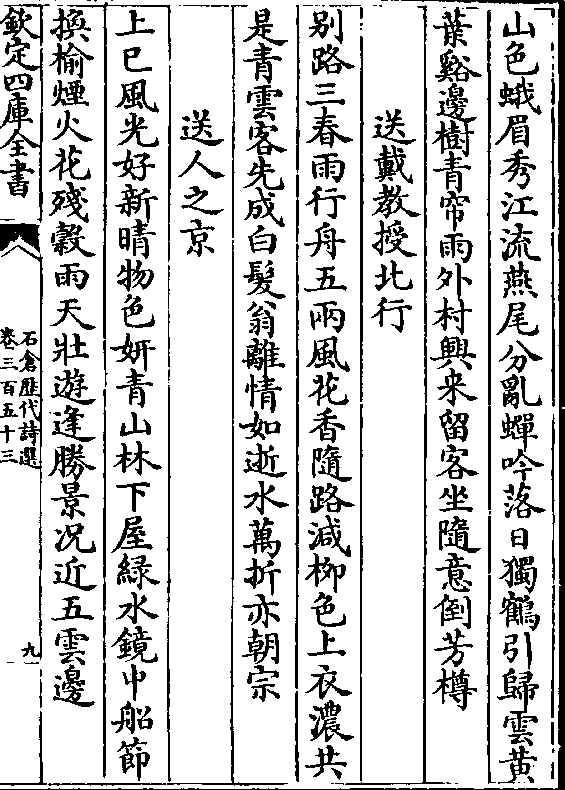 山色蛾眉秀江流燕尾分亂蟬吟落日獨鶴引歸雲黃
葉谿邊樹青帘雨外村興来留客坐隨意倒芳樽
送戴教授北行
别路三春雨行舟五兩風花香隨路減栁色上衣濃共
是青雲客先成白髮翁離情如逝水萬折亦朝宗
送人之京
上巳風光好新晴物色妍青山林下屋緑水鏡中船節
換榆煙火花殘穀雨天壯遊逢勝景况近五雲邊
欽定四庫全書
石倉歴代詩選
卷三百五十三
九